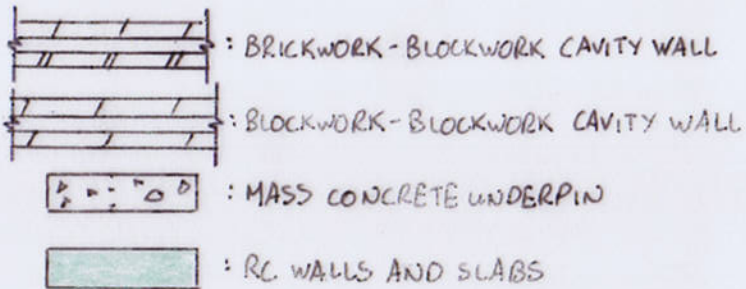 : BRICKWORK - BLOCKWORK CAVITY WALL
: BLOCKWORK - BLOCKWORK CAVITY WALL
: MASS CONCRETE UNDERPIN
: RC WALLS AND SLABS